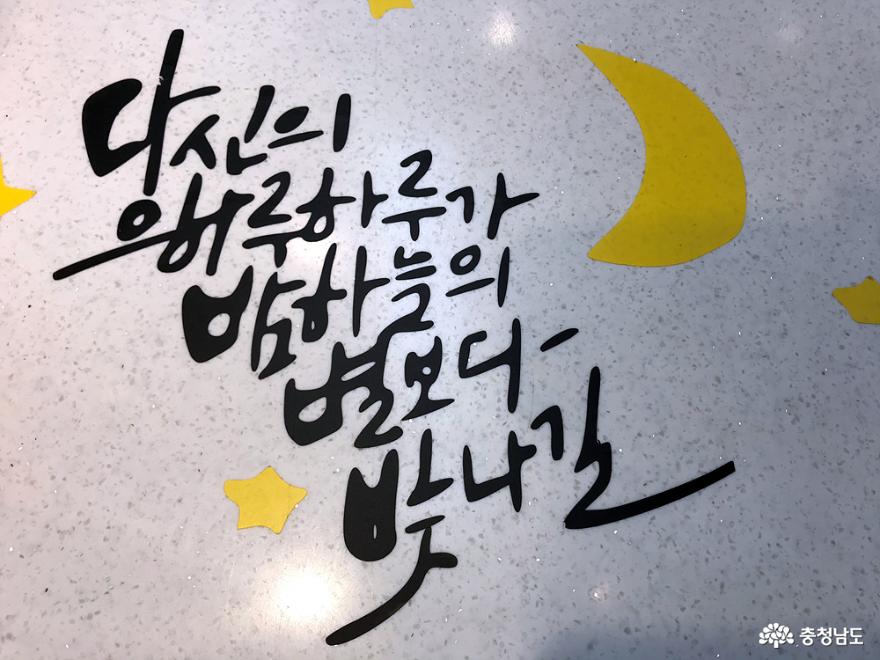 당신의
하루하루가
밤하늘의
별보다
빛나길
충청남도